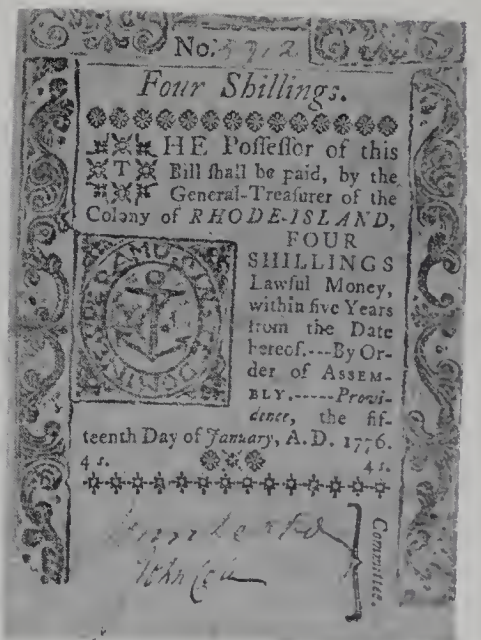 No. 3912
Four Shillings.
THE Poſſeſſor of this
Bill ſhall be paid, by the
General-Treaſurer of the
Colony of RHODE-ISLAND,
FOUR
SHILLINGS
Lawful Money,
within five Years
from the Date
hereof.---By Or-
der of ASSEM-
BLY.-----Provi-
dence, the fif-
teenth Day of January, A.D. 1776.
4s. 4s.
John
Committee.